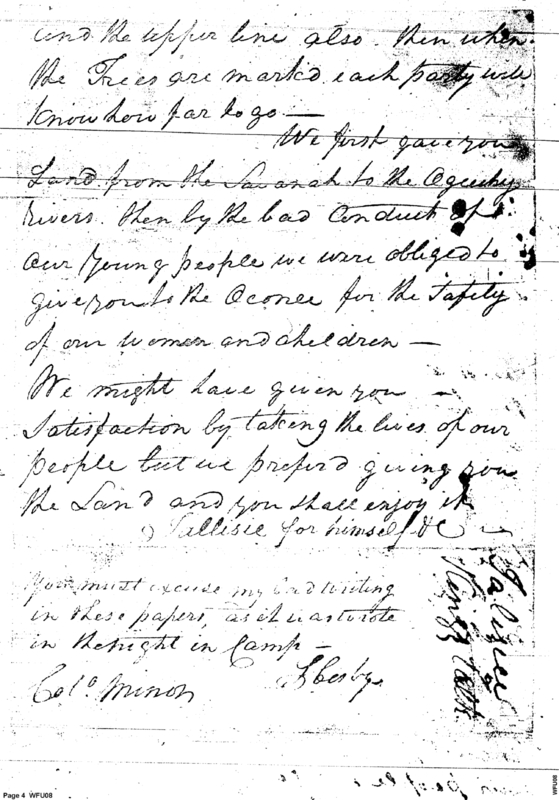 and the upper line also. then when
the Trees are markd each party will
know how far to go —
We first gave you
Land from the Savanah to the Ogeechy
rivers. then by the bad Conduct of
our young people we were obliged to
give you to the Oconee for the Safity
of our women and children —
We might have given you —
Satisfaction by taking the lives of our
people but we preferd giving you
the Land and you shall enjoy it
Tallisie for himself &C
You must excuse my bad writing
in these papers, as it was wrote
in the night in Camp —
Colo. Minor
Talisee
Kings talk
people
Page 4 WFU08
WFU08